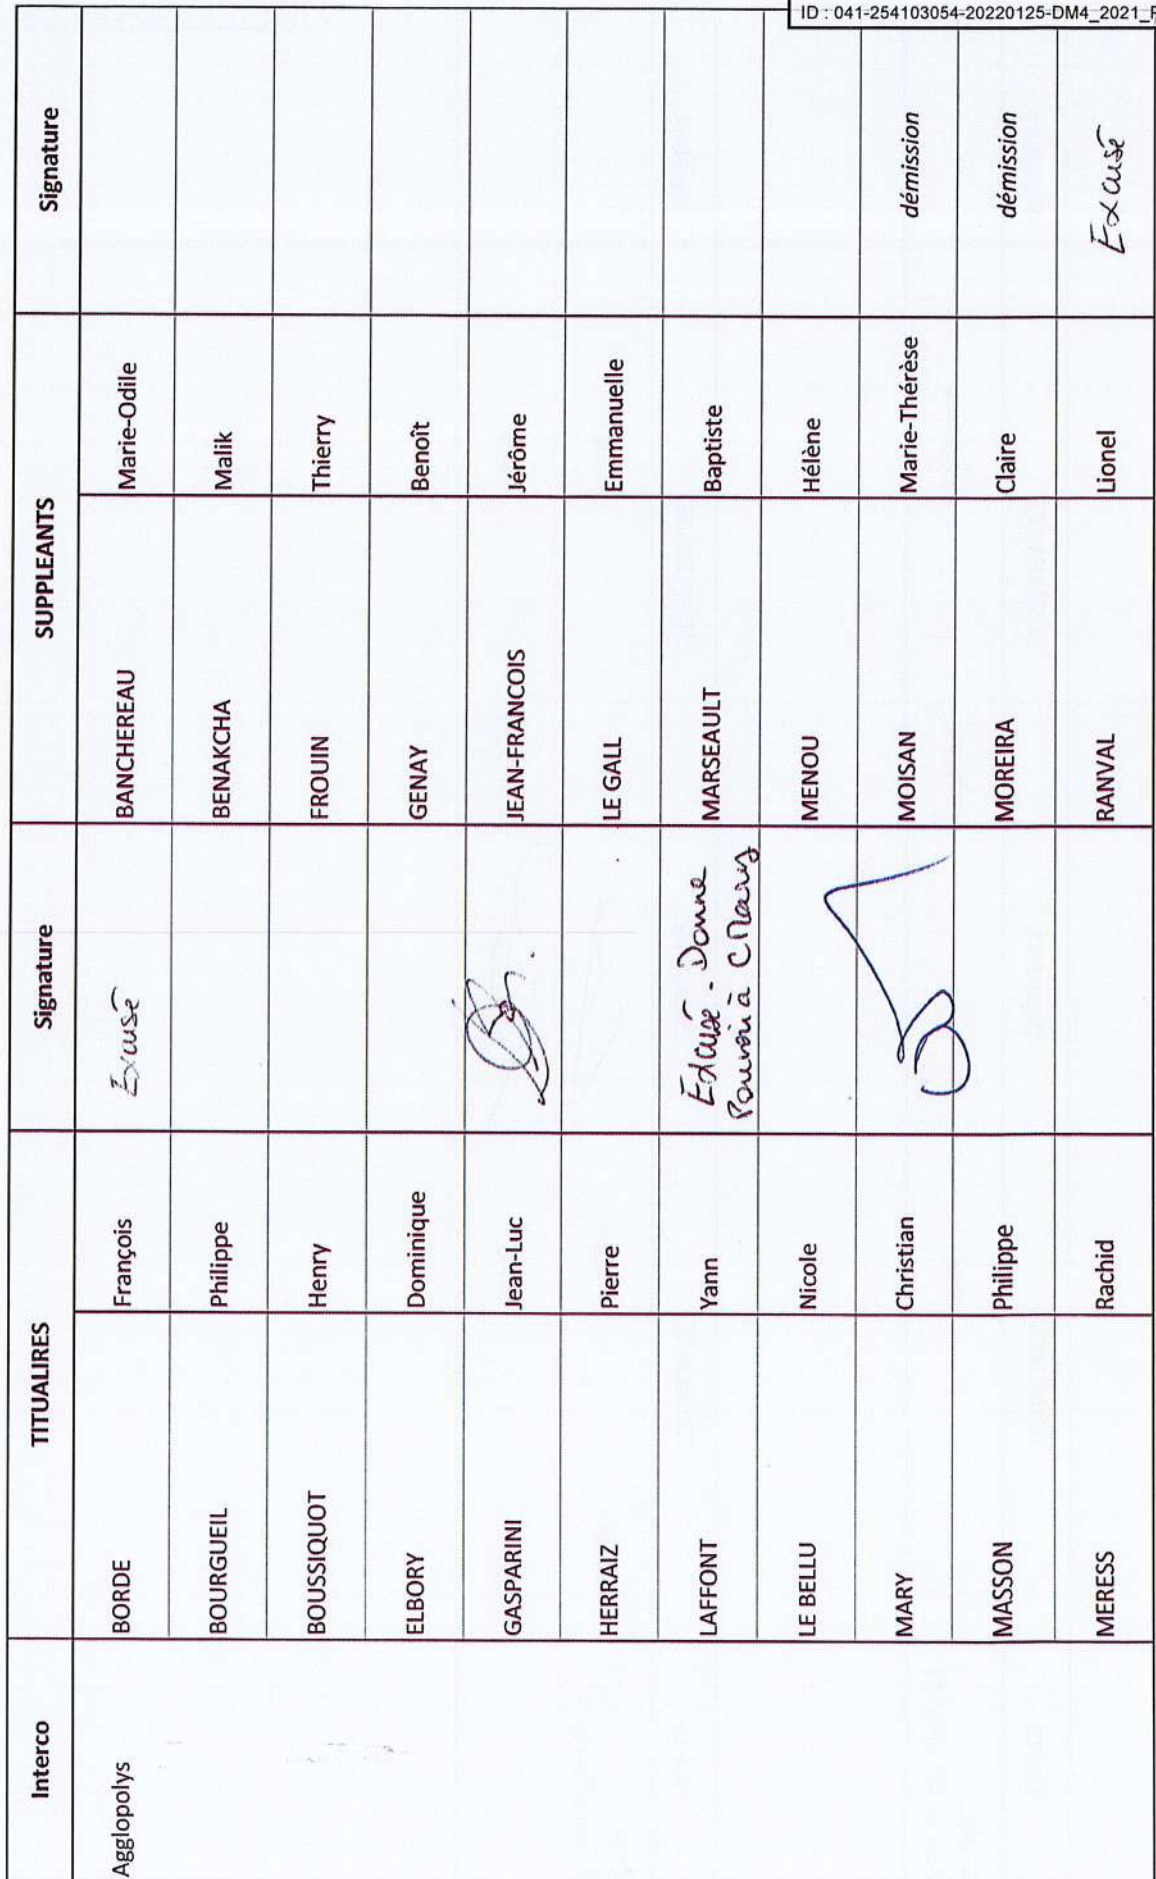 ID : 041-254103054-20220125-DM4_2021_
Interco TITUALIRES Signature SUPPLEANTS Signature
Agglopolys BORDE François Excusé BANCHEREAU Marie-Odile
BOURGUEIL Philippe BENAKCHA Malik
BOUSSIQUOT Henry FROUIN Thierry
ELBORY Dominique GENAY Benoît
GASPARINI Jean-Luc JEAN-FRANCOIS Jérôme
HERRAIZ Pierre LE GALL Emmanuelle
LAFFONT Yann Excusé - Donne MARSEAULT Baptiste
Pouvoir à C Mary
LE BELLU Nicole MENOU Hélène
MARY Christian MOISAN Marie-Thérèse démission
MASSON Philippe MOREIRA Claire démission
MERESS Rachid RANVAL Lionel Excusé